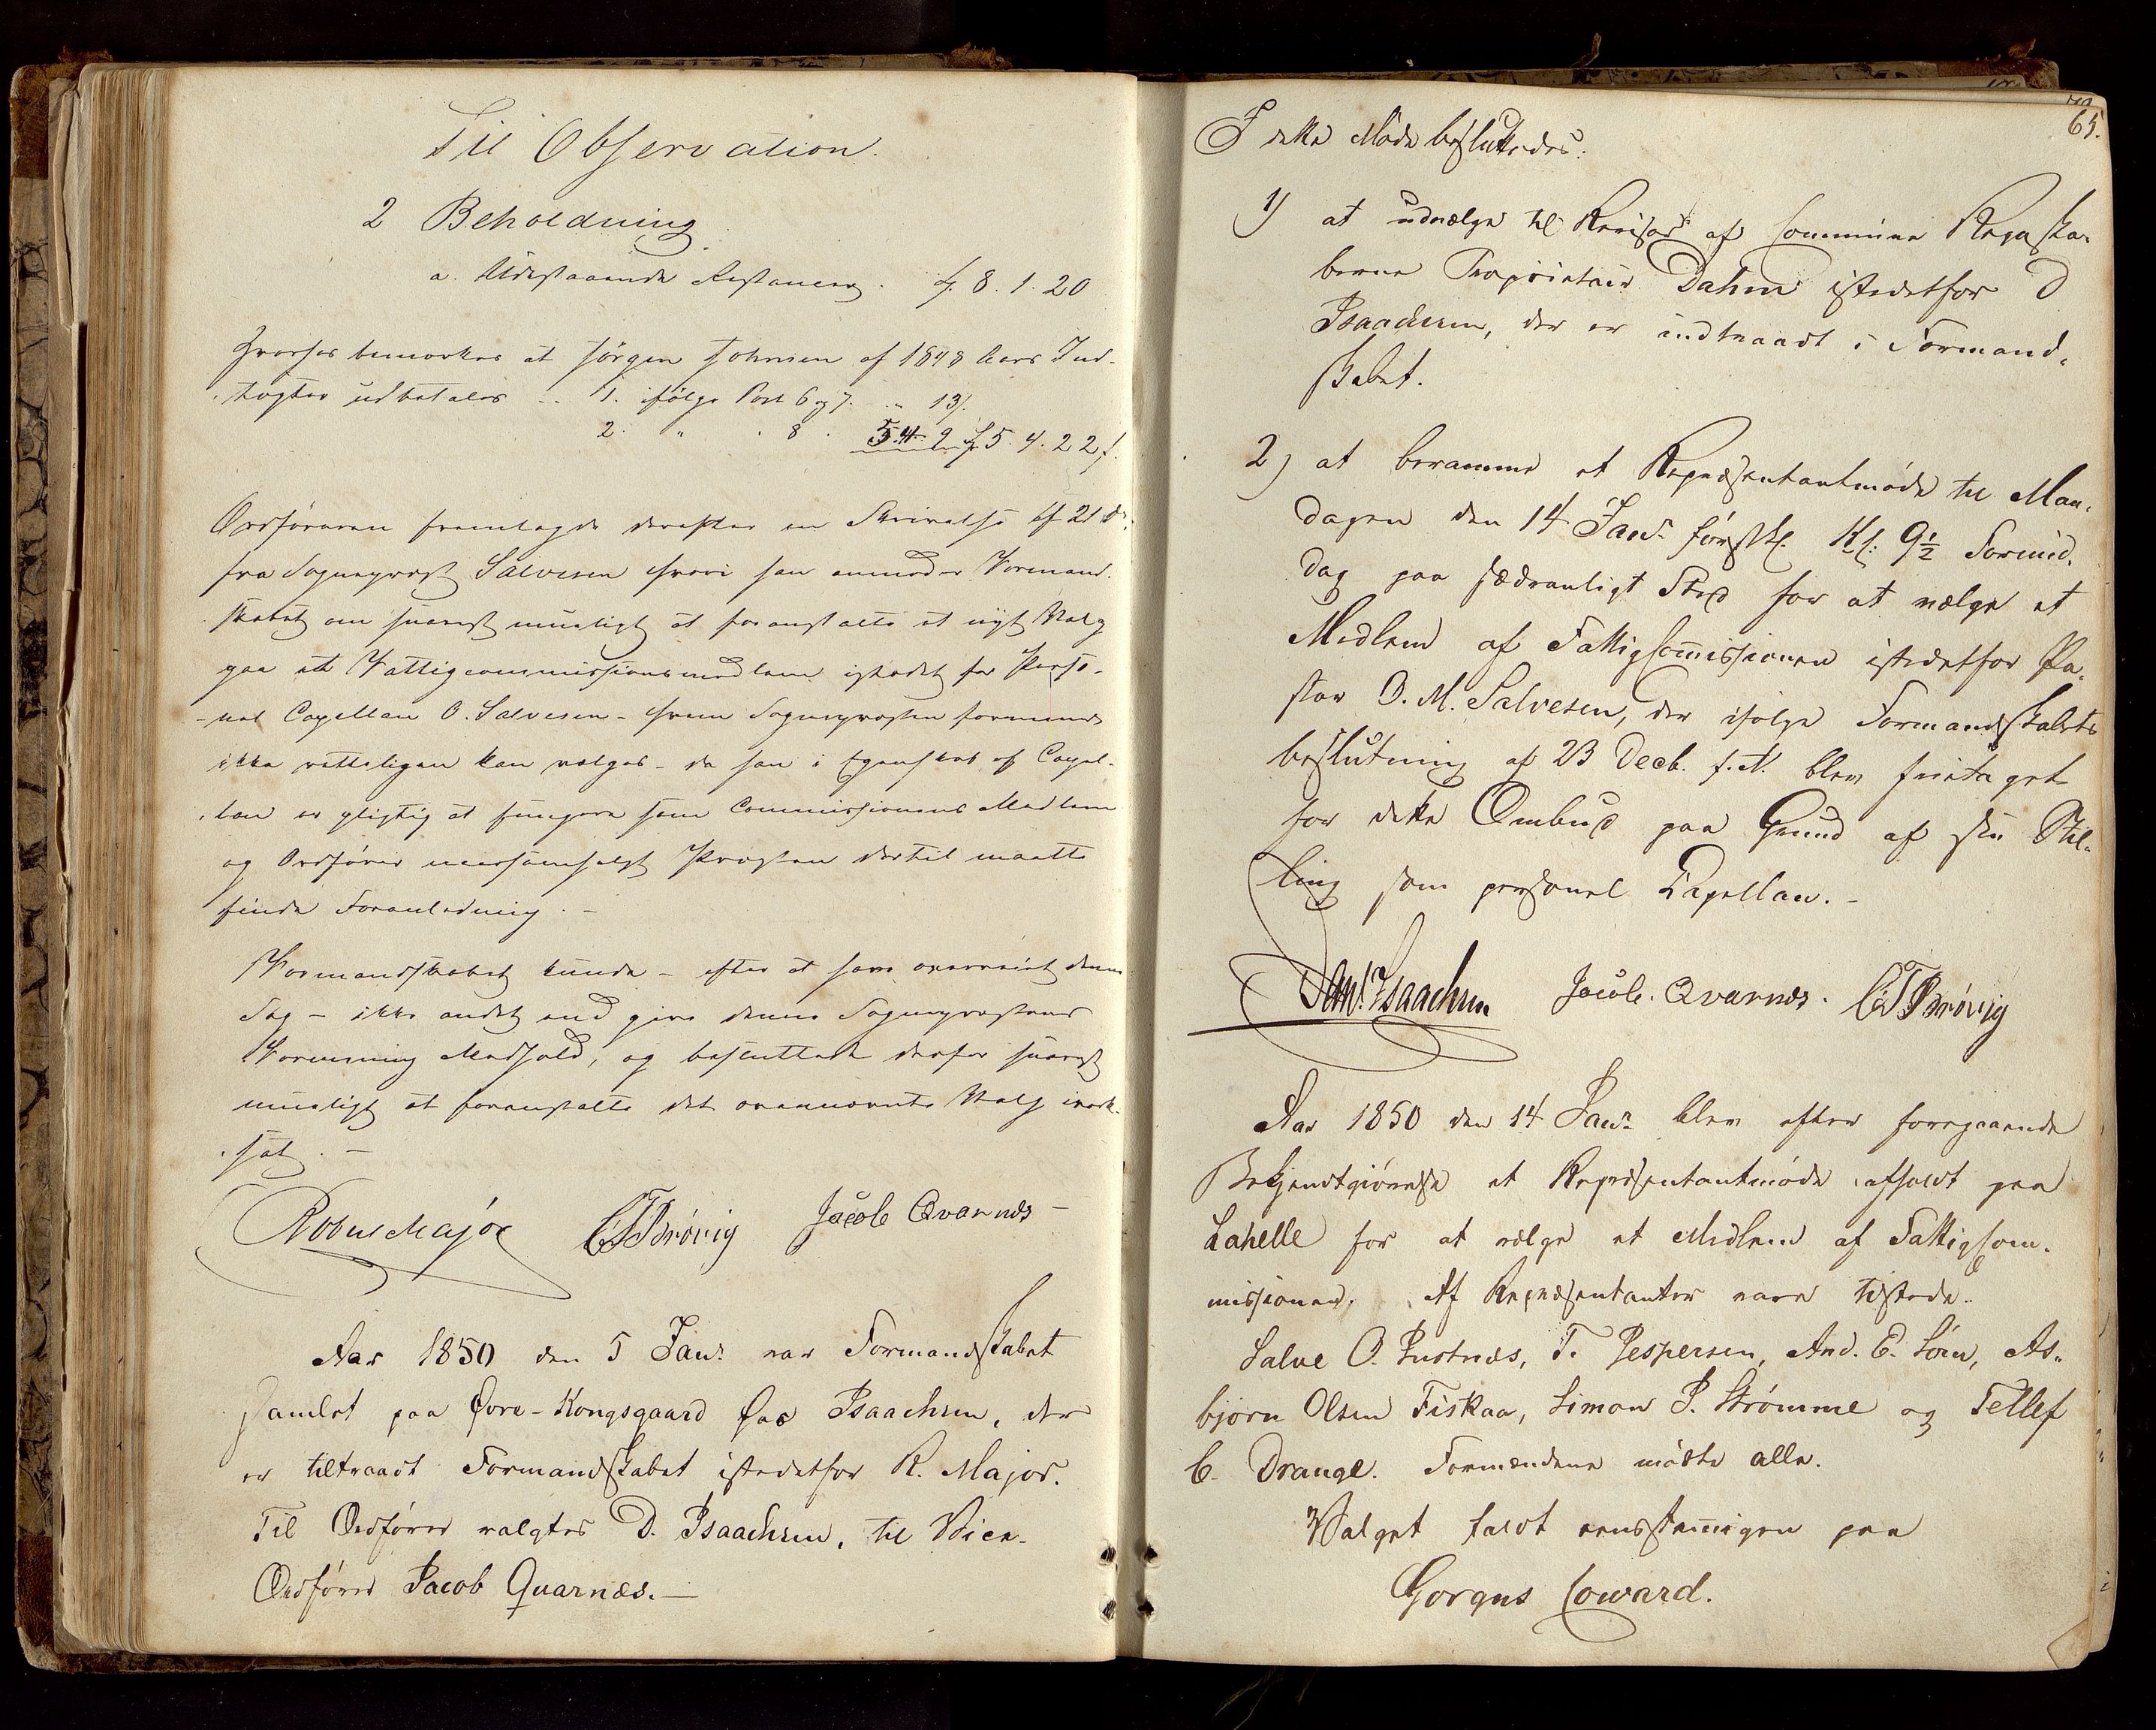 Til Observation.
2 Beholdning
a. Udestaaende Restancer. 8. 1. 20
Hvorhos bemærkes at Jørgen Johnsen af 1848 Aars Ind-
tægter udbetales .. 1. ifølge Post 6 og 7. .. 13
2. " . 8 . 9 5. 4. 22
Ordføreren fremlagde derefter en Skrivelse af 21 ds.
fra Sogneprest Salvesen hvori han anmoder Formand-
skabet om snarest mueligt at foranstalte et nyt Valg
paa et Fattigcommissionsmedlem istedet for Perso-
-nel Capellan O. Salvesen - hvem Sognepresten formener
ikke retteligen kan vælges - da han i Egenskab af Capel-
lan er pligtig at fungere som Commissionens Medlem
og Ordfører naarsomhelst Presten dertil maatte
finde Foranledning. -
Formandskabet kunde - efter at have overveiet denne
Sag - ikke andet end give denne Sogneprestens
Formening Medhold, og besluttede derfor snarest
mueligt at foranstalte det ovennævnte Valg iværk-
sat. -
Robus Major CTBrøvig Jacob Qvarnæs -
Aar 1850 den 5 Janr. var Formandskabet
samlet paa Øvre-Kongsgaard hos Isaachsen, der
er tiltraadt Formandskabet istedetfor R. Major.
Til Ordfører valgtes D. Isaachsen, til Vice-
Ordfører Jacob Quarnæs. -
65.
I dette Møde besluttedes:
1) at udvælge til Revisor af Commune Regnska-
berne Proprietair Dahm istedetfor D
Isaachsen, der er indtraadt i Formand-
skabet.
2) at beramme et Repræsentantmøde til Man-
dagen den 14 Janr. førstk. Kl. 9½ Formid-
dag paa sædvanligt Sted for at vælge et
Medlem af Fattigcommissionen istedetfor Pa-
stor O. M. Salvesen, der ifølge Formandskabets
beslutning af 23 Decb. f. A. blev fritaget
for dette Ombud paa Grund af sin Stil-
ling som personel Capellan. -
Danl. Isaachsen Jacob. Qvarnæs. CTBrøvig
Aar 1850 den 14 Janr. blev efter foregaaende
Bekjendtgiørelse et Repræsentantmøde afholdt paa
Lahelle for at vælge et Medlem af Fattigcom-
missionen. Af Repræsentanter vare tilstede.
Salve O. Justnæs, T. Jespersen, And. E. Løen, As-
bjørn Olsen Fiskaa, Simon P. Strømme og Tellef
C. Drange. Formændene mødte alle.
Valget faldt eensstemmigen paa
Gorgus Coward.